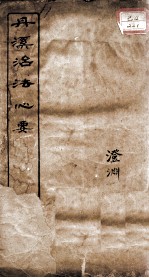 丹溪治法心要
澄渊